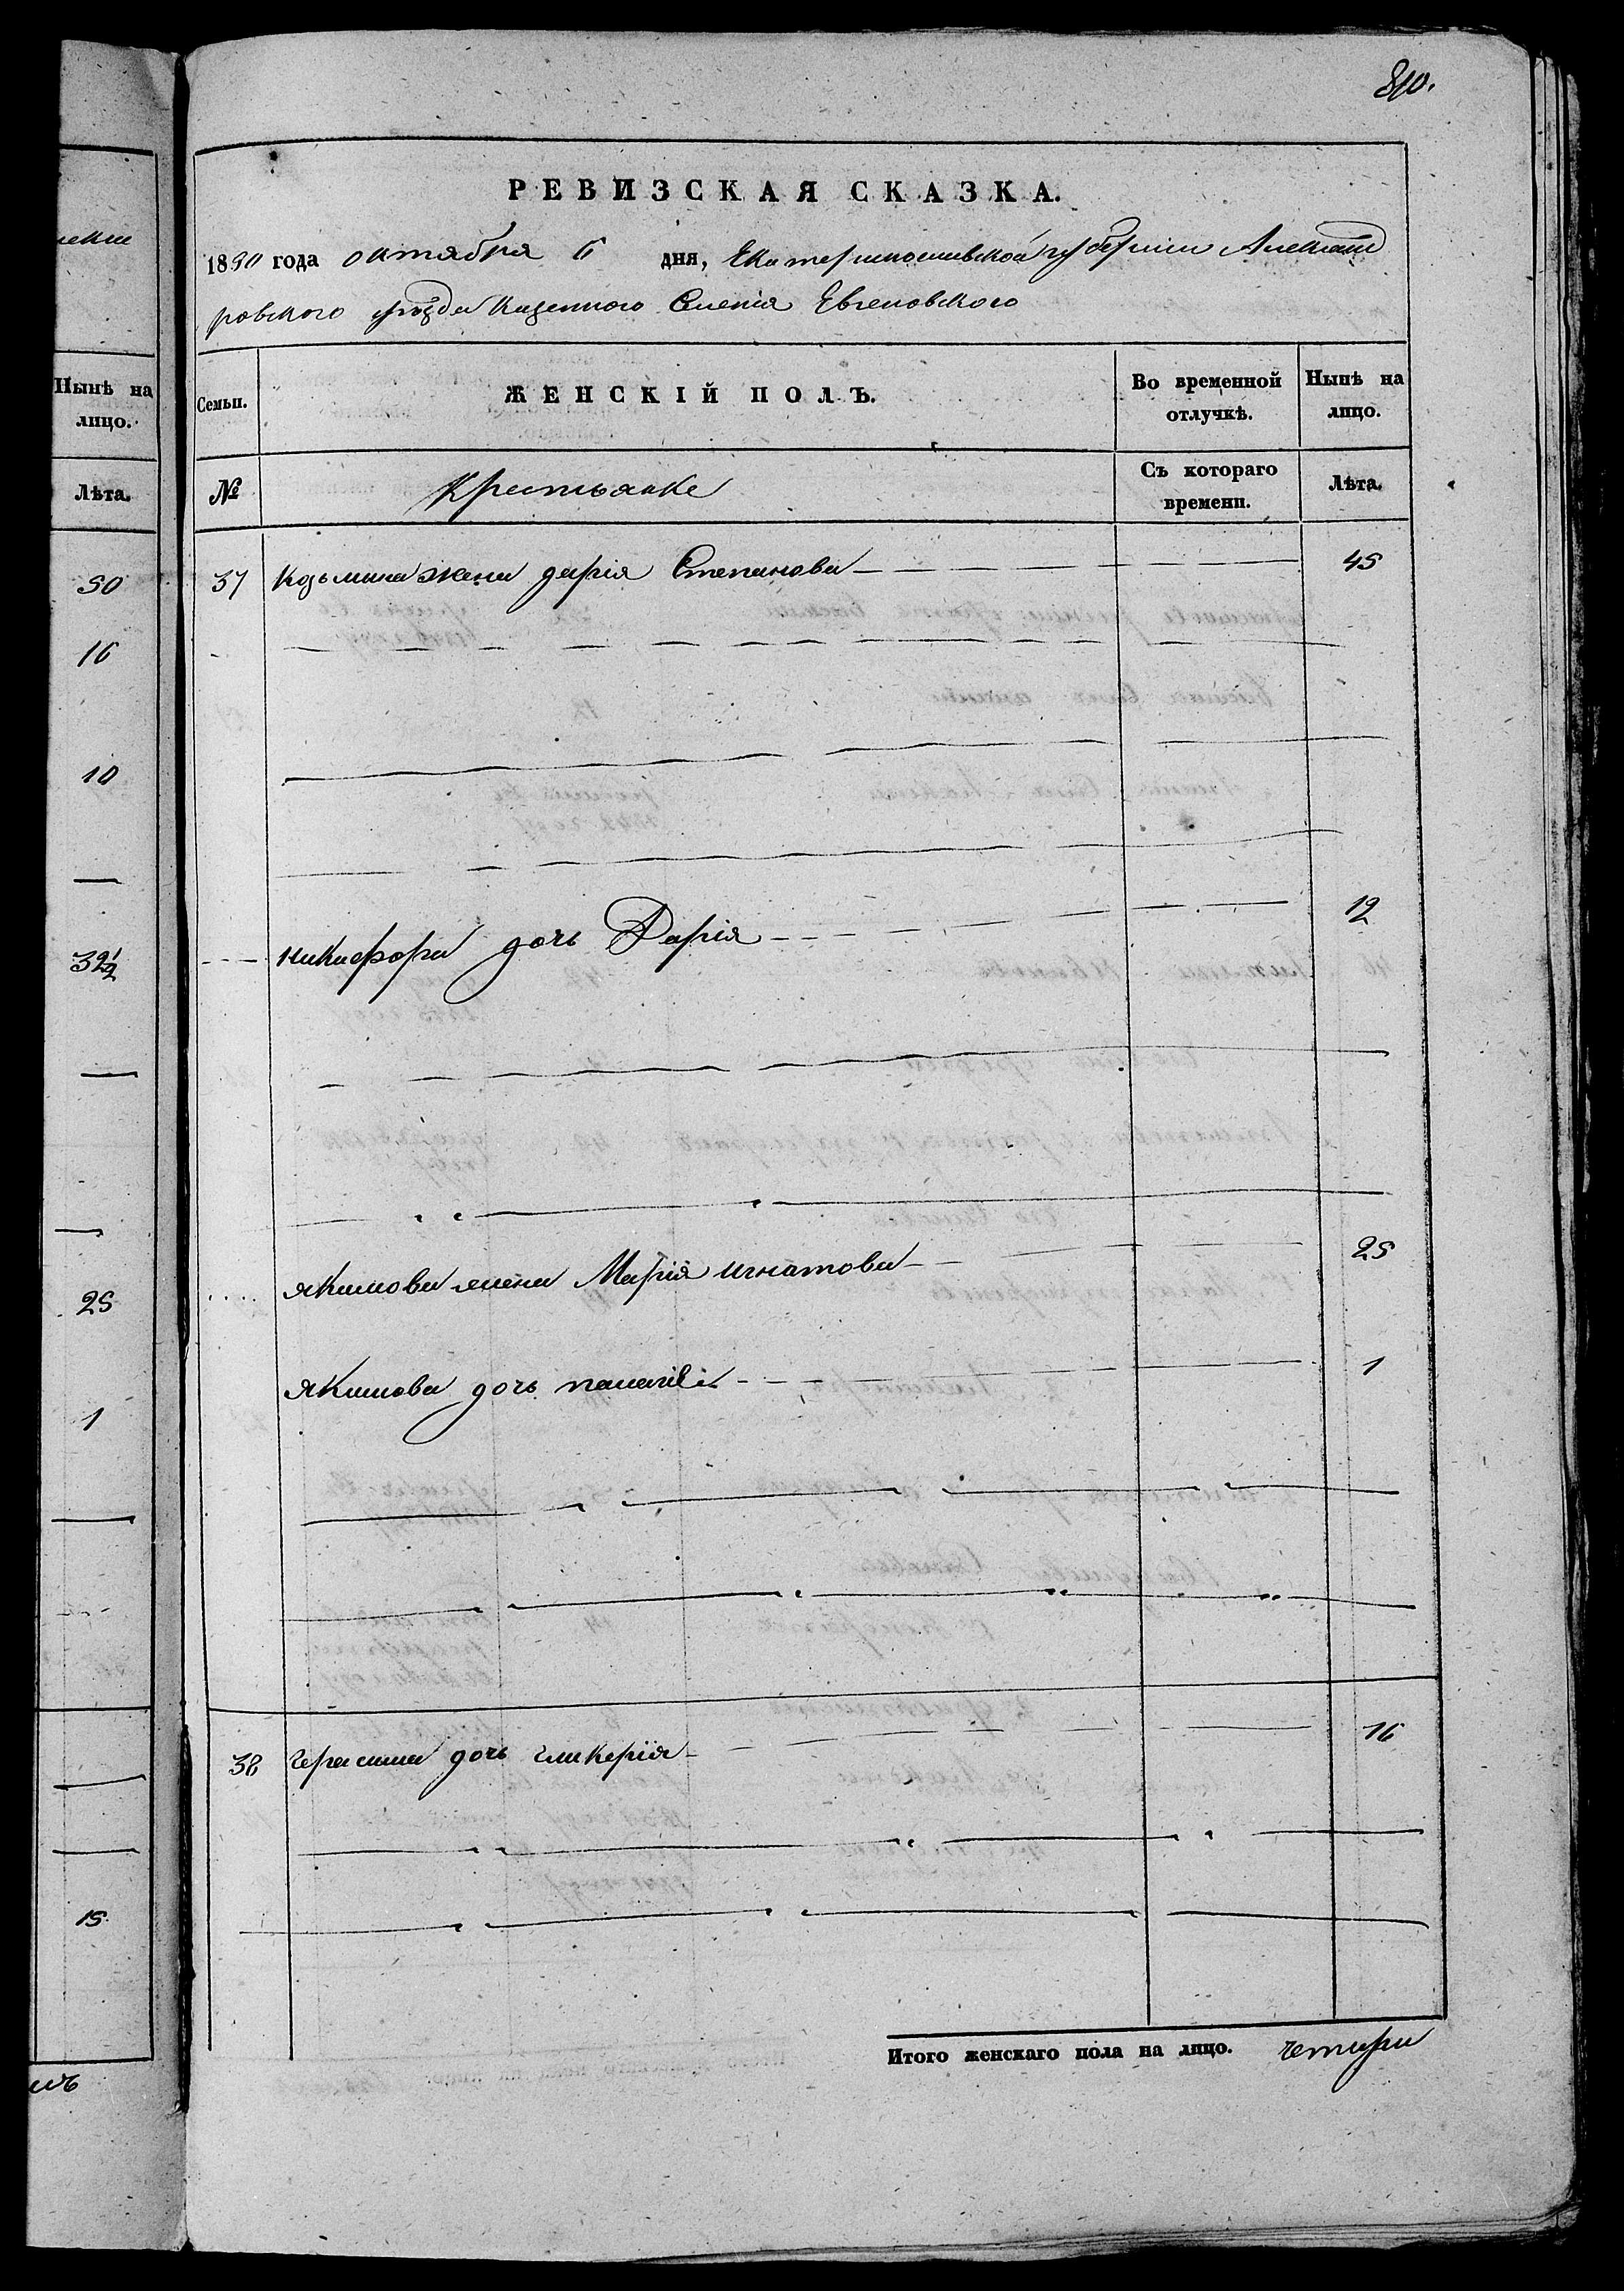 810.
РЕВИЗСКАЯ СКАЗКА.
1850 года октября 6 дня, Екатеринославской губернии Александ
ровского уѣзда казенного Селенія Евгеновского
Нынѣ на лицо.
Лѣта.
50
16
10
32½
25
1
15
Семьи. ЖЕНСКІЙ ПОЛЪ. Во временной отлучкѣ. Нынѣ на лицо.
№ Крестьянке Съ котораго времени. Лѣта.
37 Козьмина жена дарія Степанова 45
никифора дочь Дарія 12
якимова жена Марія игнатова 25
якимова дочь 1
38 герасима дочь гликерія 16
Итого женскаго пола на лицо. четыри